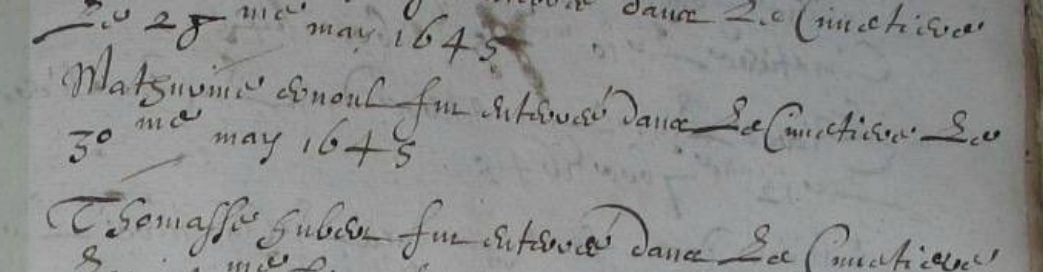 dans Le Cimetiere
Le 28 me may 1645
Mathurine ernoul fut enterree dans Le Cimetiere Le
30 me may 1645
Thomasse huber fut enterree dans Le Cimetiere
me